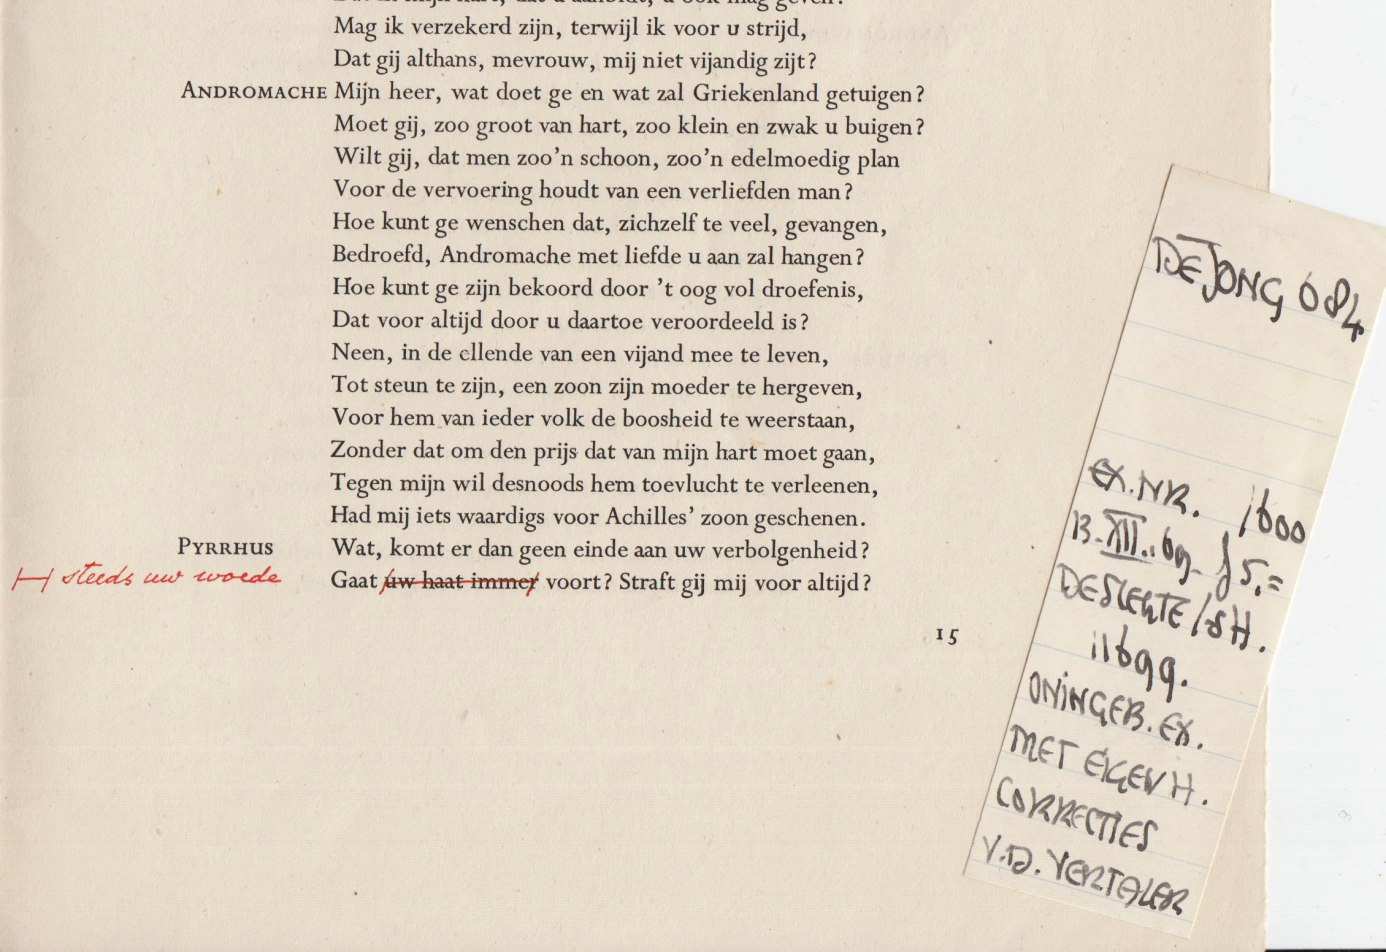 Mag ik verzekerd zijn, terwijl ik voor u strijd,
Dat gij althans, mevrouw, mij niet vijandig zijt?
ANDROMACHE Mijn heer, wat doet ge en wat zal Griekenland getuigen?
Moet gij, zoo groot van hart, zoo klein en zwak u buigen?
Wilt gij, dat men zoo'n schoon, zoo'n edelmoedig plan
Voor de vervoering houdt van een verliefden man?
Hoe kunt ge wenschen dat, zichzelf te veel, gevangen,
Bedroefd, Andromache met liefde u aan zal hangen?
Hoe kunt ge zijn bekoord door 't oog vol droefenis,
Dat voor altijd door u daartoe veroordeeld is?
Neen, in de ellende van een vijand mee te leven,
Tot steun te zijn, een zoon zijn moeder te hergeven,
Voor hem van ieder volk de boosheid te weerstaan,
Zonder dat om den prijs dat van mijn hart moet gaan,
Tegen mijn wil desnoods hem toevlucht te verleenen,
Had mij iets waardigs voor Achilles' zoon geschenen.
PYRRHUS Wat, komt er dan geen einde aan uw verbolgenheid?
steeds uw woede
Gaat uw haat immer voort? Straft gij mij voor altijd?
15
DE JONG 084
EX. NR. 1600
13-XII..69. f 5.=
DE SLEGTE/SH.
11699.
ONINGEB. EX.
MET EIGENH.
CORRECTIES
V.D. VERTALER